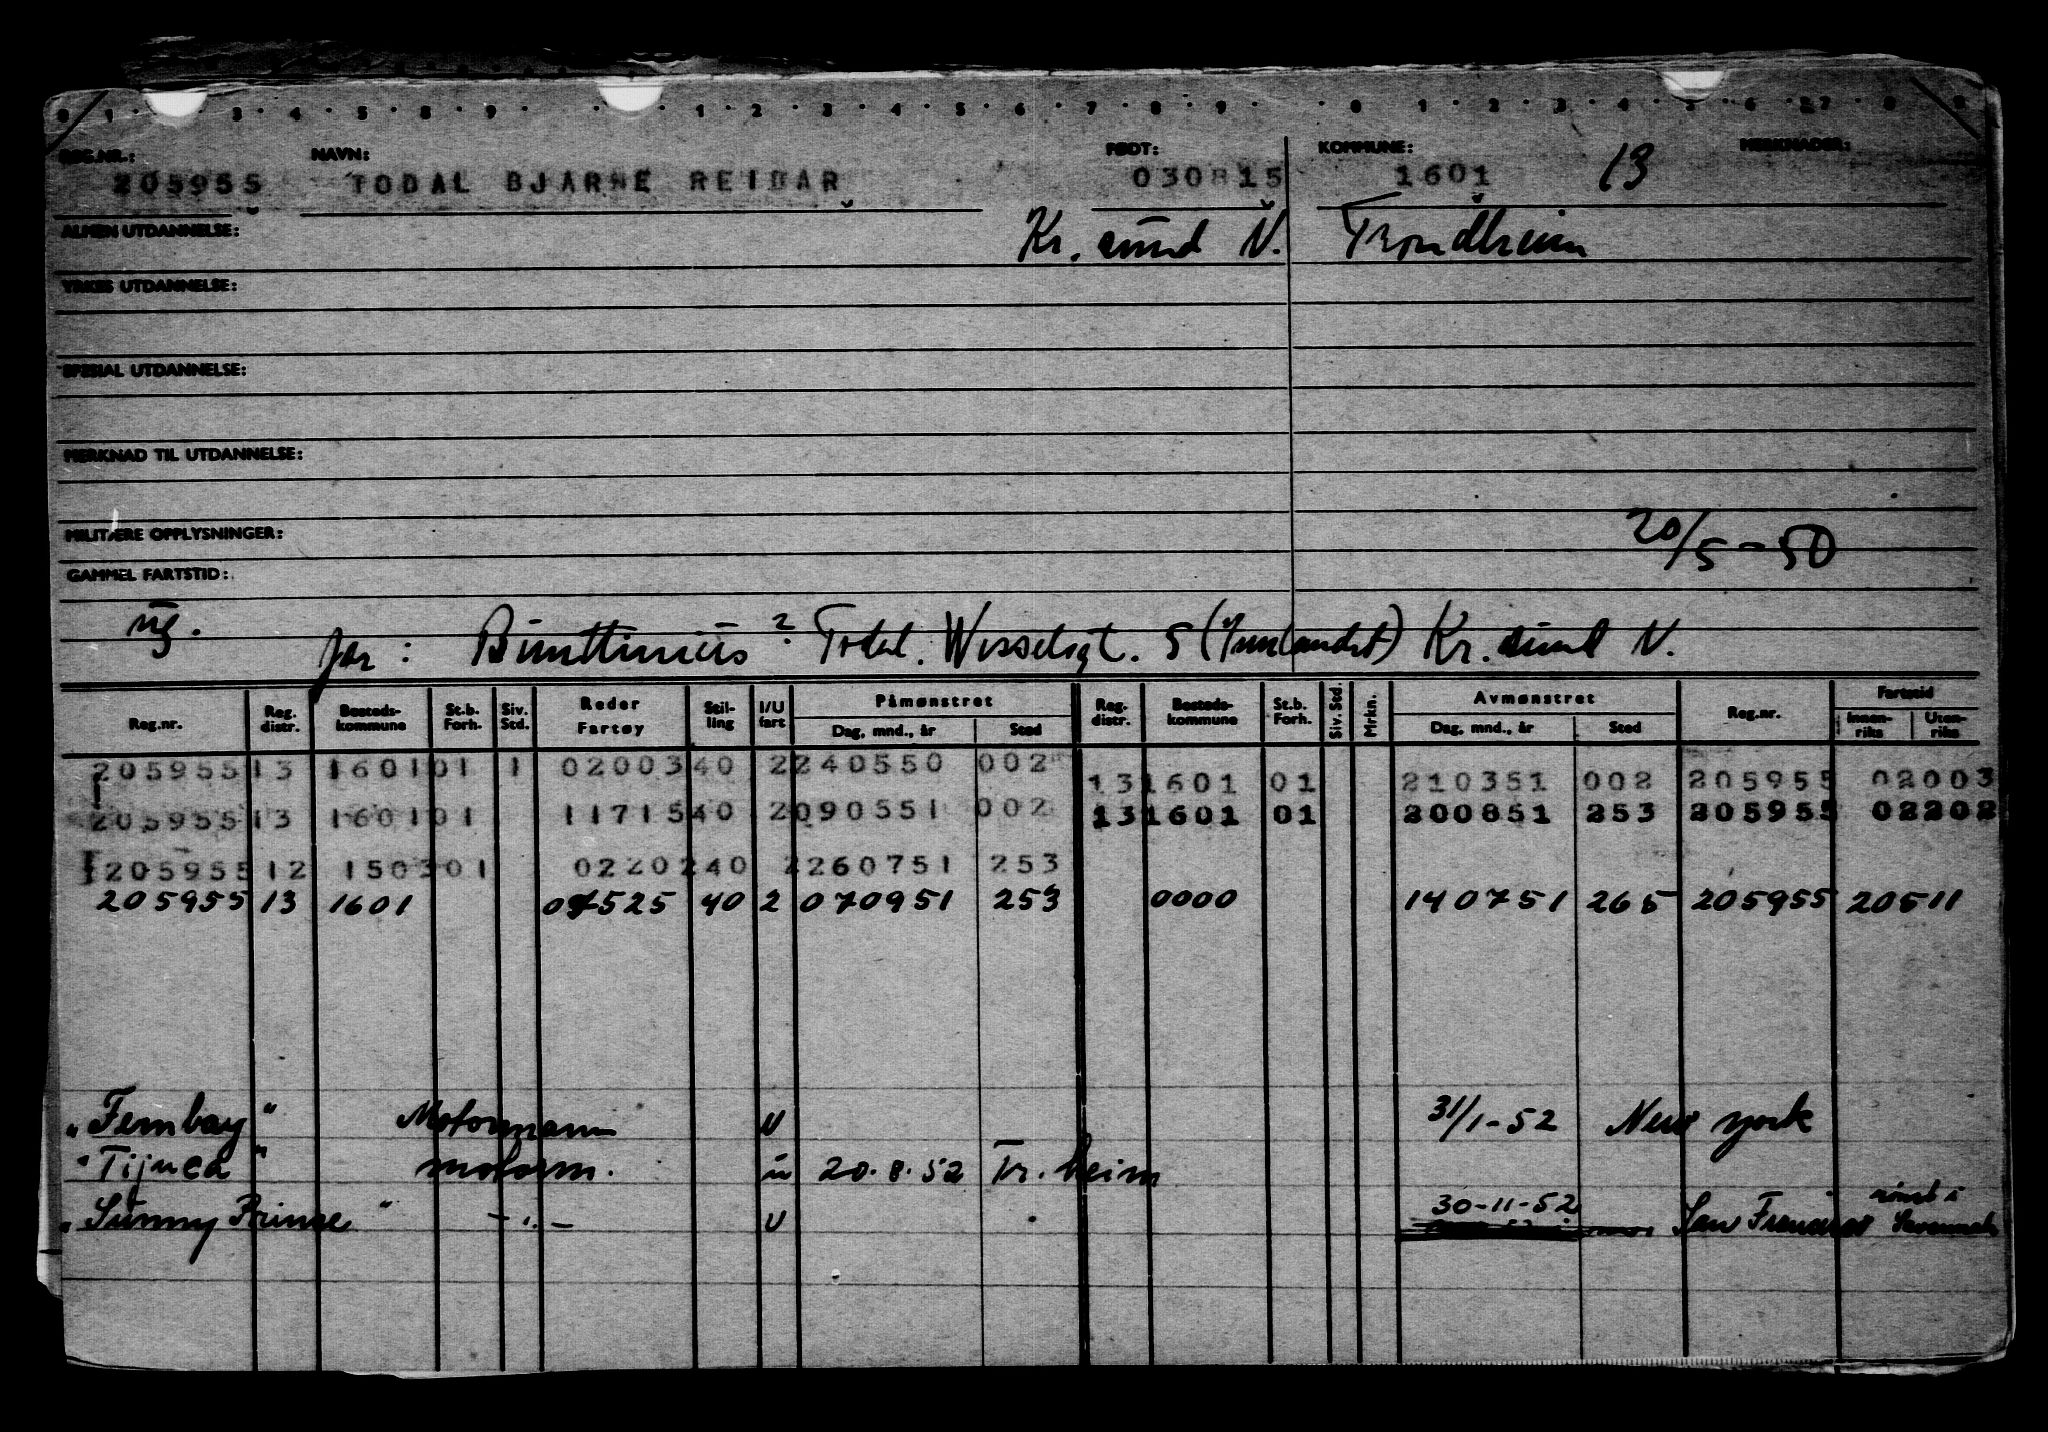 REG.NR.: NAVN: FØDT: KOMMUNE: MERKNADER:
205955 TODAL BJARNE REIDAR 030815 1601 13
ALMEN UTDANNELSE: Kr. sund N. Trondheim
YRKES UTDANNELSE:
SPESIAL UTDANNELSE:
MERKNAD TIL UTDANNELSE:
MILITÆRE OPPLYSNINGER: 20/5-50
GAMMEL FARTSTID:
ug. far: ? Todal. 5 (Innlandet) Kr. sund N.
Reg.nr. Reg. distr. Bosteds-kommune St.b. Forh. Siv. Std. Reder Fartøy Stil-ling I/U fart Påmønstret Dag, mnd., år Sted Reg. distr. Bosteds-kommune St.b. Forh. Siv. Std. Mrkn. Avmønstret Dag, mnd., år Sted Reg.nr. Fartstid Innen-riks Uten-riks
205955 13 1601 01 1 02003 40 2 240550 002 13 1601 01 210351 002 205955 02003
205955 13 1601 01 11715 40 2 090551 002 13 1601 01 200851 253 205955 02202
205955 12 1503 01 02202 40 2 260751 253
205955 13 1601 525 40 2 070951 253 0000 140751 265 205955 20511
"Fernbay" Motormann U 31/1-52 New York
"Tijuca" motorm. u 20.8.52 Tr.heim
"Sunny Prince" -"- U 30-11-52 San Francisco rømt i Savannah